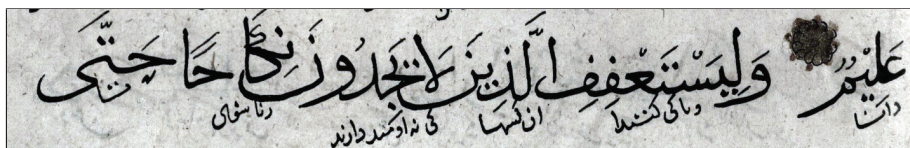 عَلِيمٌ وَلْيَسْتَعْفِفِ الَّذِينَ لَا يَجِدُونَ نِكَاحًا حَتَّى
دانا و پاکی کنندا ان کسها کی نه اومند دارند زناشوی